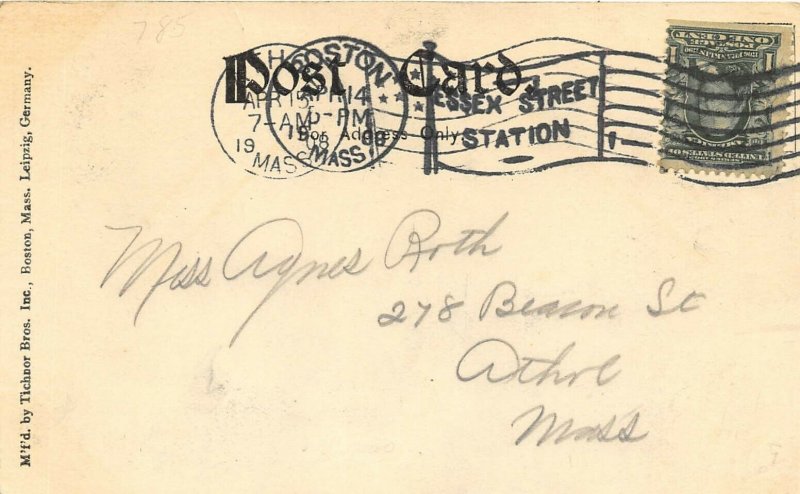 785
Post Card.
For Address Only
BOSTON
APR 14
5-PM
MASS.
APR 15
7-AM
19
MASS
ESSEX STREET
STATION
1
Miss Agnes Roth
278 Beacon St
Athol
Mass
M'f'd. by Tichnor Bros. Inc., Boston, Mass. Leipzig, Germany.
ONE CENT
POSTAGE
1
1
FRANKLIN